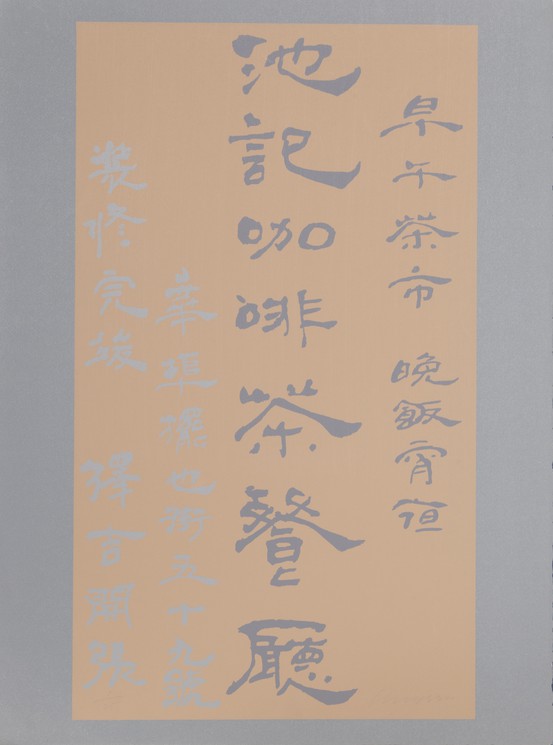 早午茶市 晚飯宵亱
池記咖啡茶餐廳
華埠擺也街五十九號
裝修完後 擇吉開張